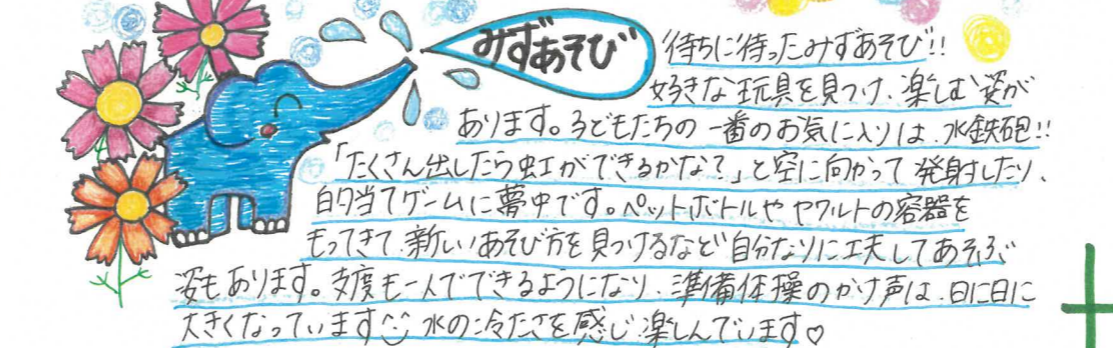 みずあそび
待ちに待ったみずあそび!!
好きな玩具を見つけ、楽しむ姿が
あります。子どもたちの一番のお気に入りは、水鉄砲!!
「たくさん出したら虹ができるかな?」と空に向かって発射したり、
的当てゲームに夢中です。ペットボトルやヤクルトの容器を
もってきて、新しいあそび方を見つけるなど自分なりに工夫してあそぶ
姿もあります。支度も一人でできるようになり、準備体操のかけ声は、日に日に
大きくなっています 水の冷たさを感じ楽しんでいます♡